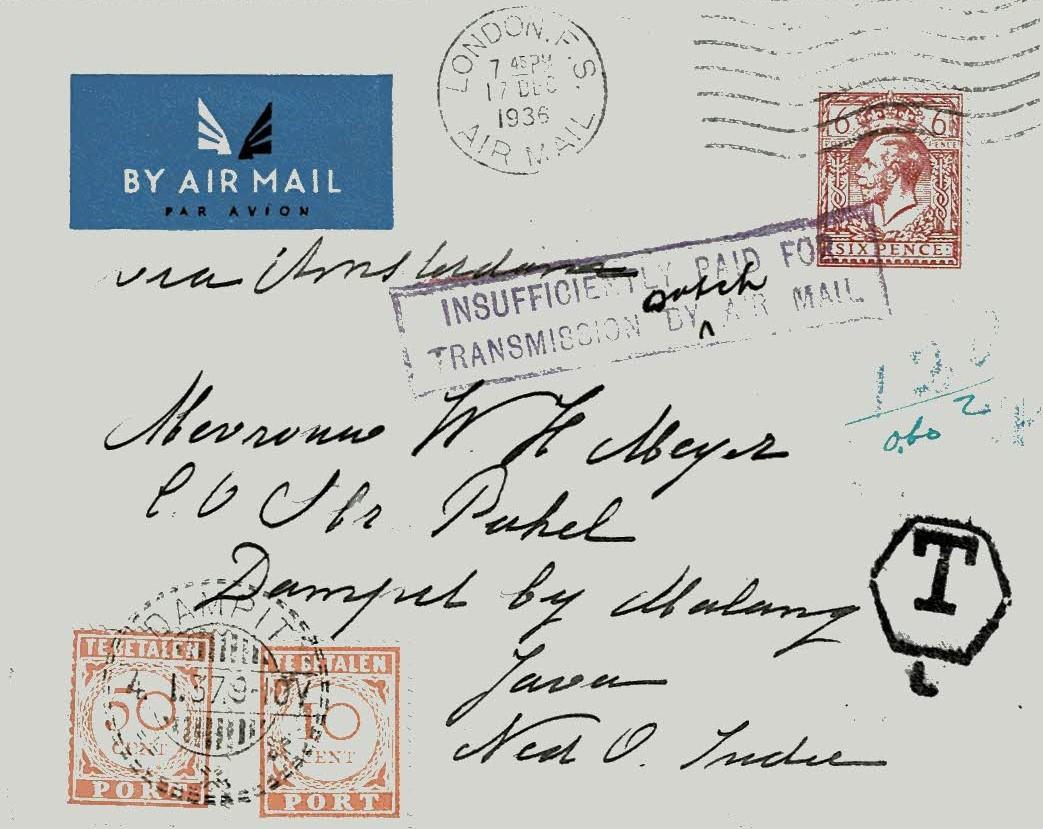 LONDON. F.S.
7 45 PM
17 DEC
1936
AIR MAIL
6 6
SIX PENCE
BY AIR MAIL
PAR AVION
via Amsterdam
INSUFFICIENTLY PAID FOR
Dutch
TRANSMISSION BY AIR MAIL
Mevrouw W. H Meyer
0,60
T
Dampit by Malang
Java
Ned O. Indie
DAMPIT
4. 1.37.9-10V
TE BETALEN
50
CENT
PORT
TE BETALEN
10
CENT
PORT